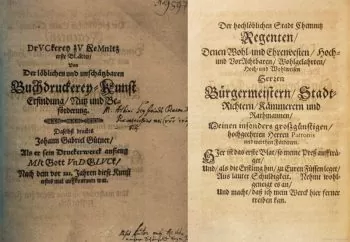 DrVCkerey ZV KeMnitz
erste Blätter/
Von
Der löblichen und unschätzbaren
Buchdruckerey-Kunst
Erfindung/ Nutz und Be-
förderung.
Daselbst druckts
Johann Gabriel Güttner/
Als er sein Druckerwerck anfang
Mit Gott VnD GLVCk/
Nach dem vor 200. Jahren diese Kunst
erstes mal auffkommen war.
Der hochlöblichen Stadt Chemnitz
Regenten/
Denen Wohl-und Ehrenvesten/ Hoch-
und Vorsichtbaren/ Wohlgelahrten/
Hoch-und Wohlweisen
Herren
Bürgermeistern/ Stadt-
Richtern/ Kämmerern und
Rathmannen/
Meinen insonders großgünstigen/
hochgeehrten Herren Patronis
und werthen Förderern.
Hier ist das erste Blat/ so meine Preß aufftrā-
get/
Und/ als die Erstling ihn/ zu Euren Füssen leget/
Aus lauter Schuldigkeit. Nehmt wohl-
geneigt es an/
Und macht/ daß ich mein Werck hier ferner
treiben kan.